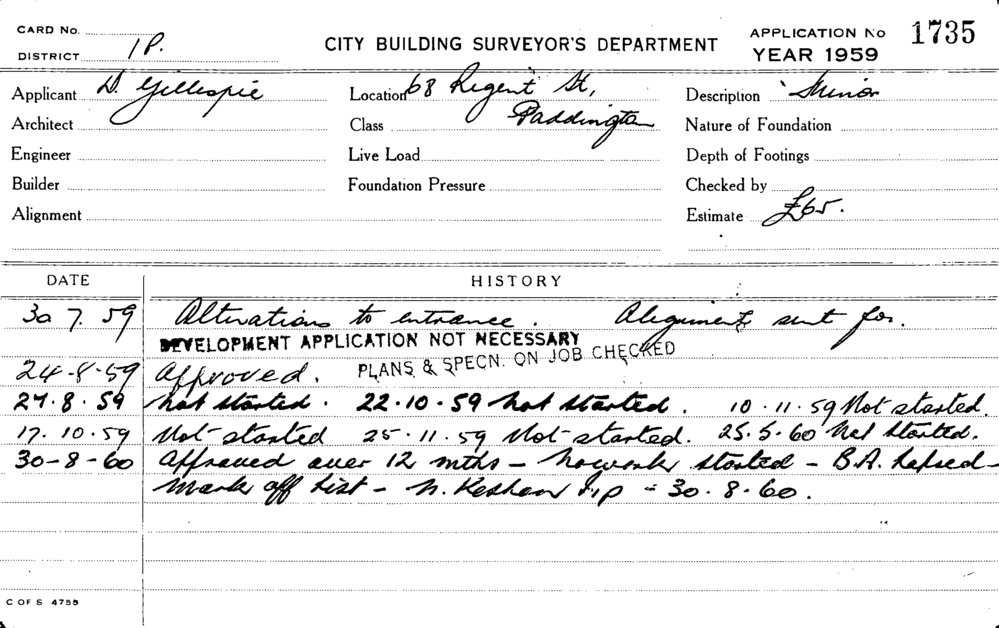 CARD No.
DISTRICT 1P.
CITY BUILDING SURVEYOR'S DEPARTMENT
APPLICATION No 1735
YEAR 1959
Applicant D. Gillespie Location 68 Regent St, Description Minor
Architect Class Paddington Nature of Foundation
Engineer Live Load Depth of Footings
Builder Foundation Pressure Checked by
Alignment Estimate £65.
DATE HISTORY
30 7. 59 Alterations to entrance. Alignment sent for.
DEVELOPMENT APPLICATION NOT NECESSARY
24-8-59 Approved. PLANS & SPECN. ON JOB CHECKED
27.8.59 Not started. 22.10.59 Not started. 10.11.59 Not started.
17.10.59 Not started 25.11.59 Not started. 25.5.60 Not started.
30-8-60 Approved over 12 mths - No work started - B.A. Lapsed -
Mark off List - 30.8.60.
C OF S 4755